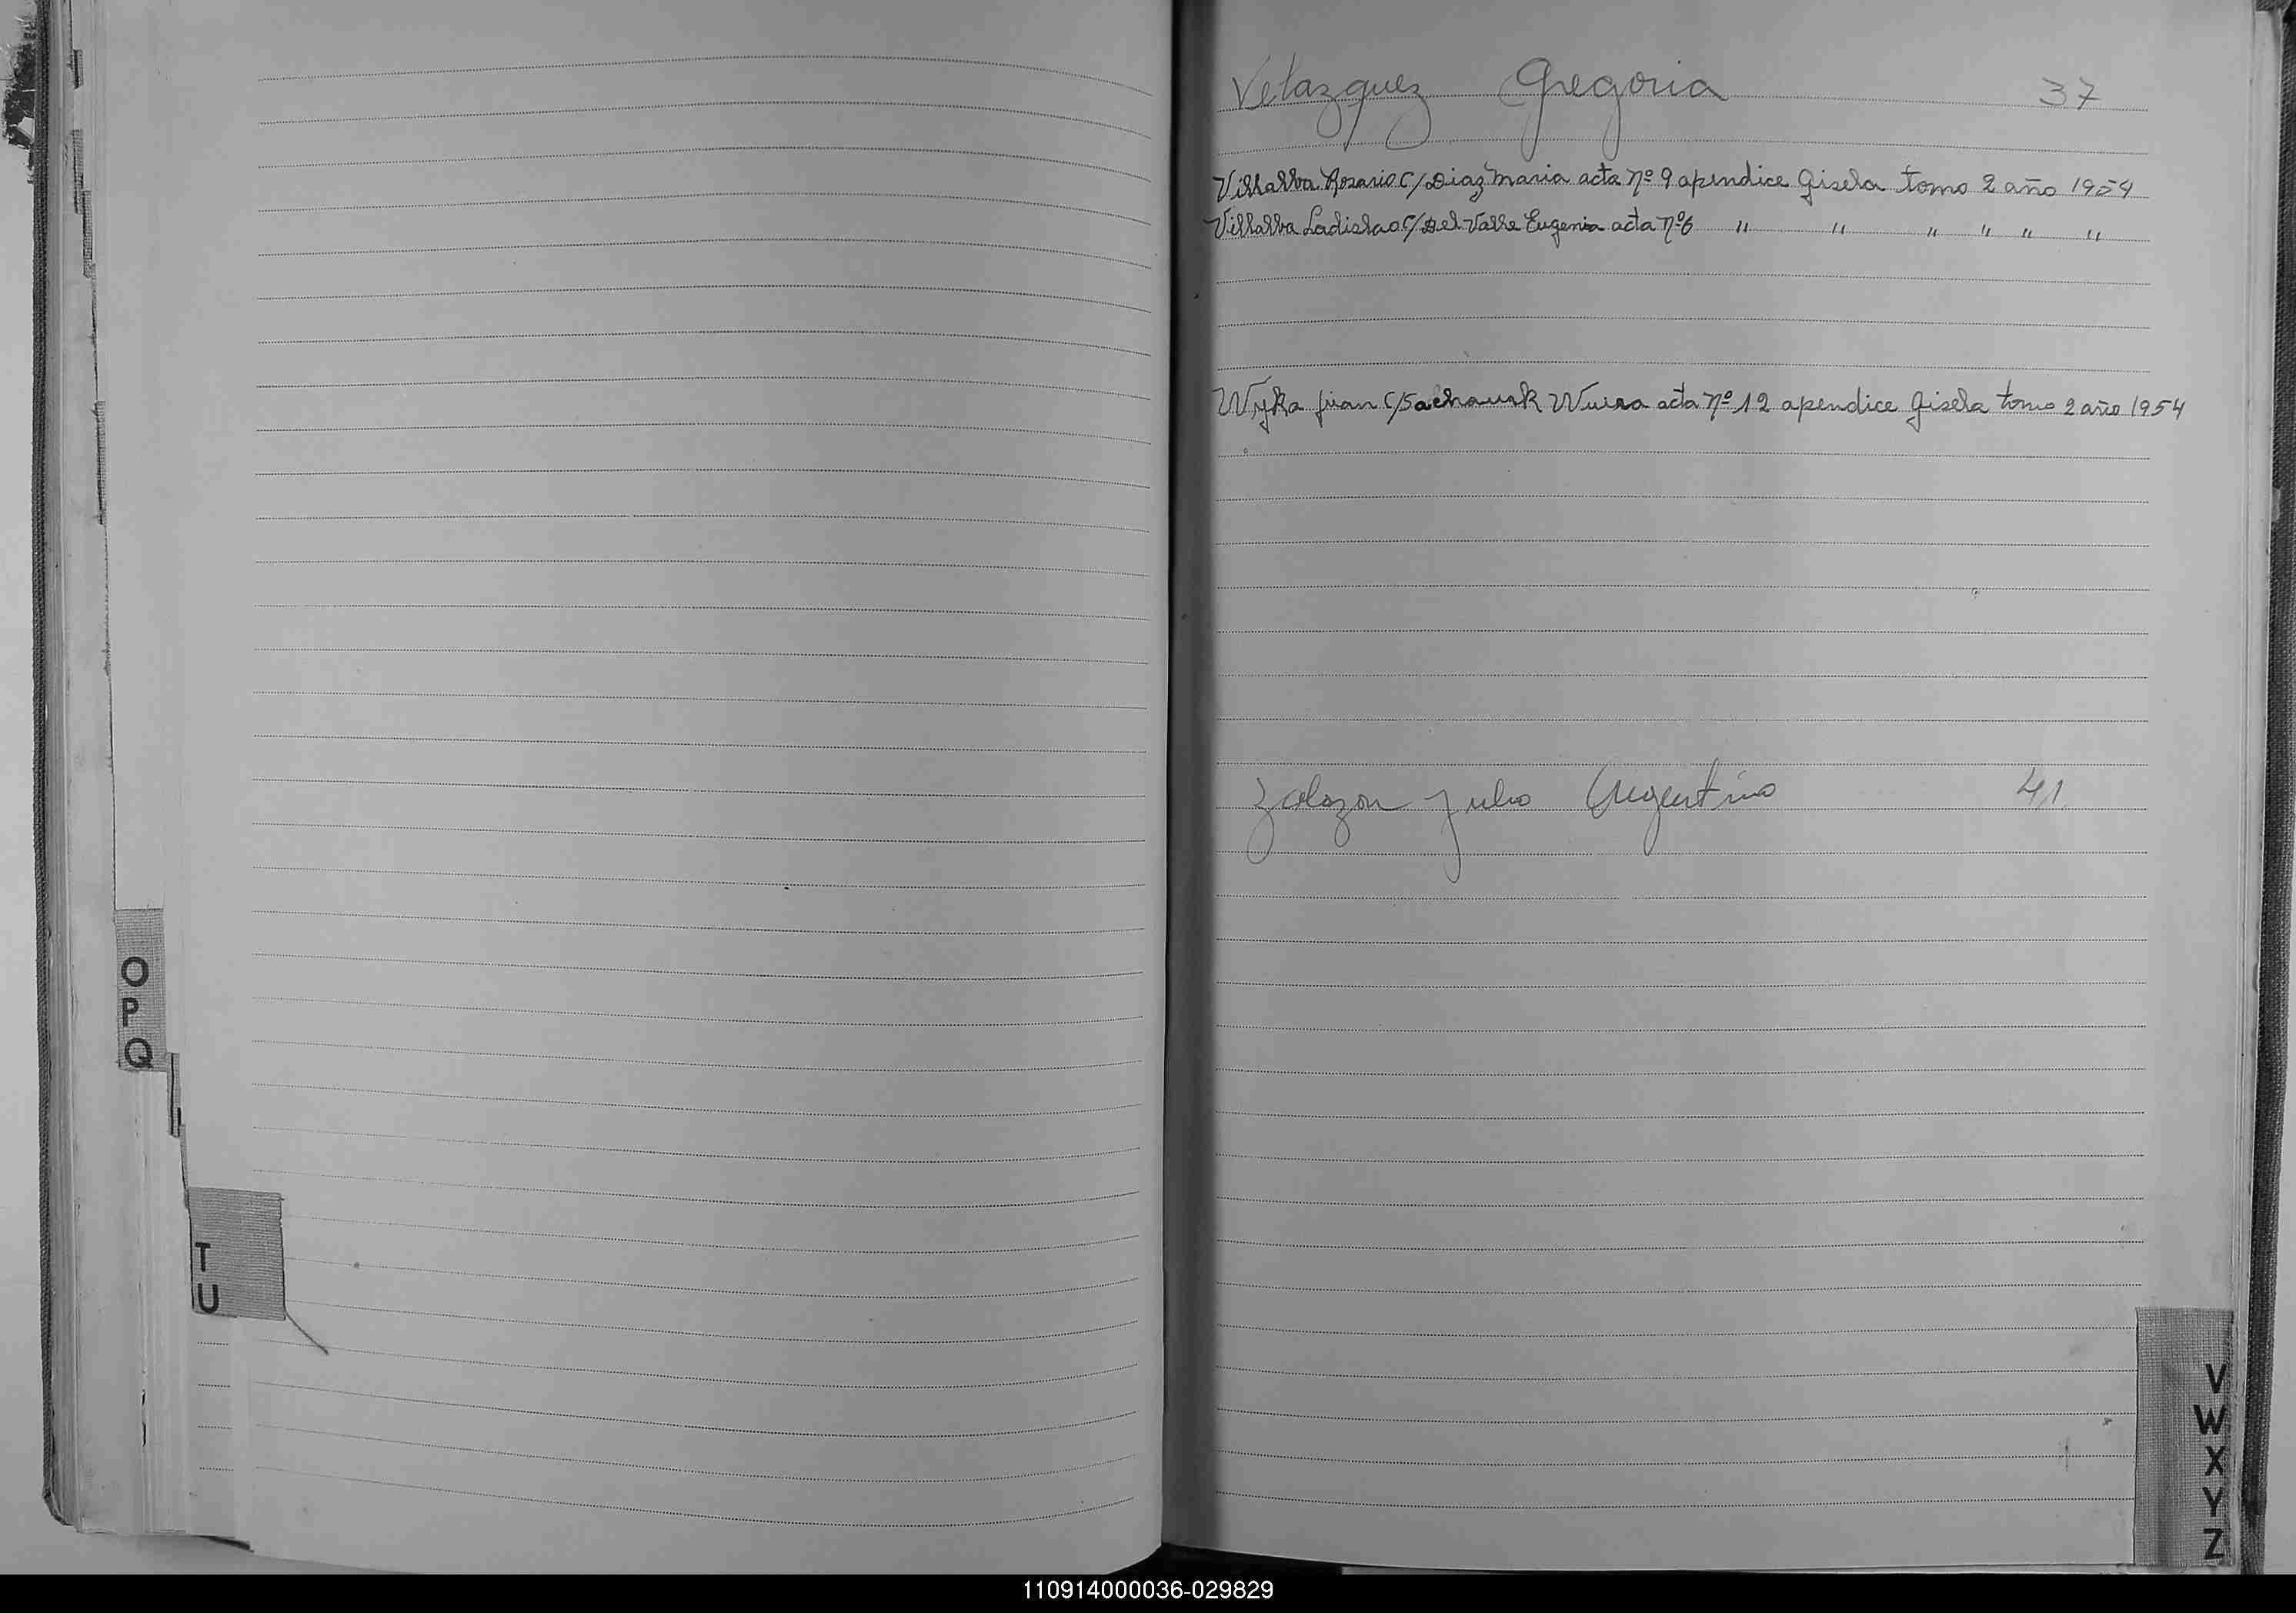 Velazquez Gregoria 37
Villalba Rosario C/ Diaz Maria acta Nº 9 apendice Gisela tomo 2 año 1954
Villalba Ladislao C/ Del Valle Eugenia acta Nº 6 " " " " " "
Wyka Juan C/ acta Nº 12 apendice Gisela tomo 2 año 1954
Zalazon Julio Argentino 41
O
P
Q
T
U
V
W
X
Y
Z
110914000036-029829